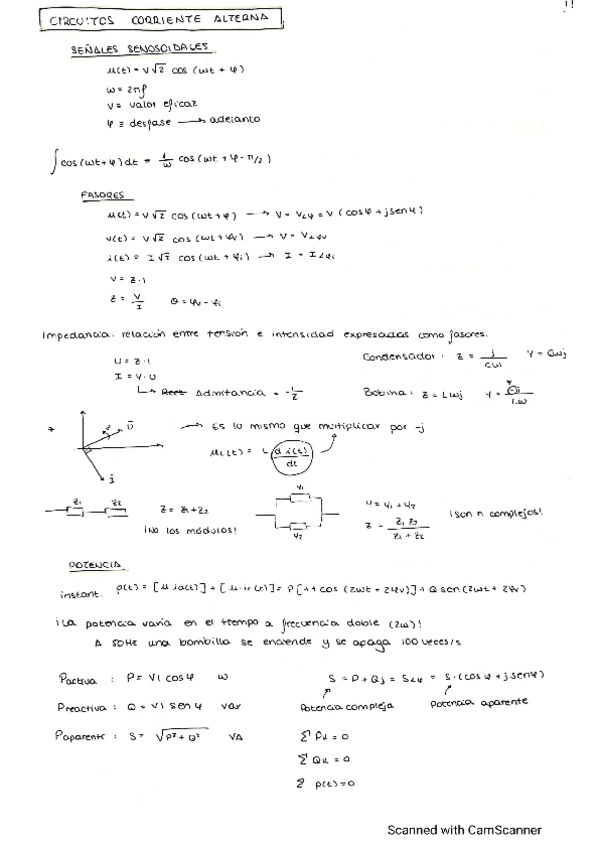 CIRCUITOS CORRIENTE ALTERNA
SEÑALES SENOSOIDALES
u(t) = V√2 cos (ωt + φ)
ω = 2πf
V = valor eficaz
φ ≡ desfase → adelanto
∫cos(ωt+φ)dt = 1/ω cos(ωt + φ - π/2)
FASORES
u(t) = V√2 cos(ωt+φ) → V = V∠φ = V (cosφ + jsenφ)
v(t) = V√2 cos(ωt+φv) → V = V∠φv
i(t) = I√2 cos(ωt + φi) → I = I∠φi
V = Z·I
Z = V/I θ = φv - φi
Impedancia: relación entre tensión e intensidad expresadas como fasores.
U = Z·I Condensador: Z = j/Cω Y = Cωj
I = Y·U
↳ Admitancia = 1/Z Bobina: Z = Lωj Y = -j/Lω
* Ū Ī → Es lo mismo que multiplicar por -j
uL(t) = L di(t)/dt
Z1 Z2 Z = Z1+Z2 Y1 Y2 Y = Y1 + Y2
¡No los módulos! Z = Z1 Z2 / Z1 + Z2 ¡Son n complejos!
POTENCIA
instant. p(t) = [u·ia(t)] + [u·ir(t)] = P[1+cos (2ωt + 2φv)] + Q sen(2ωt + 2φv)
¡La potencia varía en el tiempo a frecuencia doble (2ω)!
A 50Hz una bombilla se enciende y se apaga 100 veces/s
Pactiva : P = VI cosφ W S = P + Qj = S∠φ = S·(cosφ + jsenφ)
Preactiva : Q = VI senφ Var Potencia compleja Potencia aparente
Paparente : S = √P²+Q² VA Σ Pk = 0
Σ Qk = 0
Σ p(t) = 0
Scanned with CamScanner